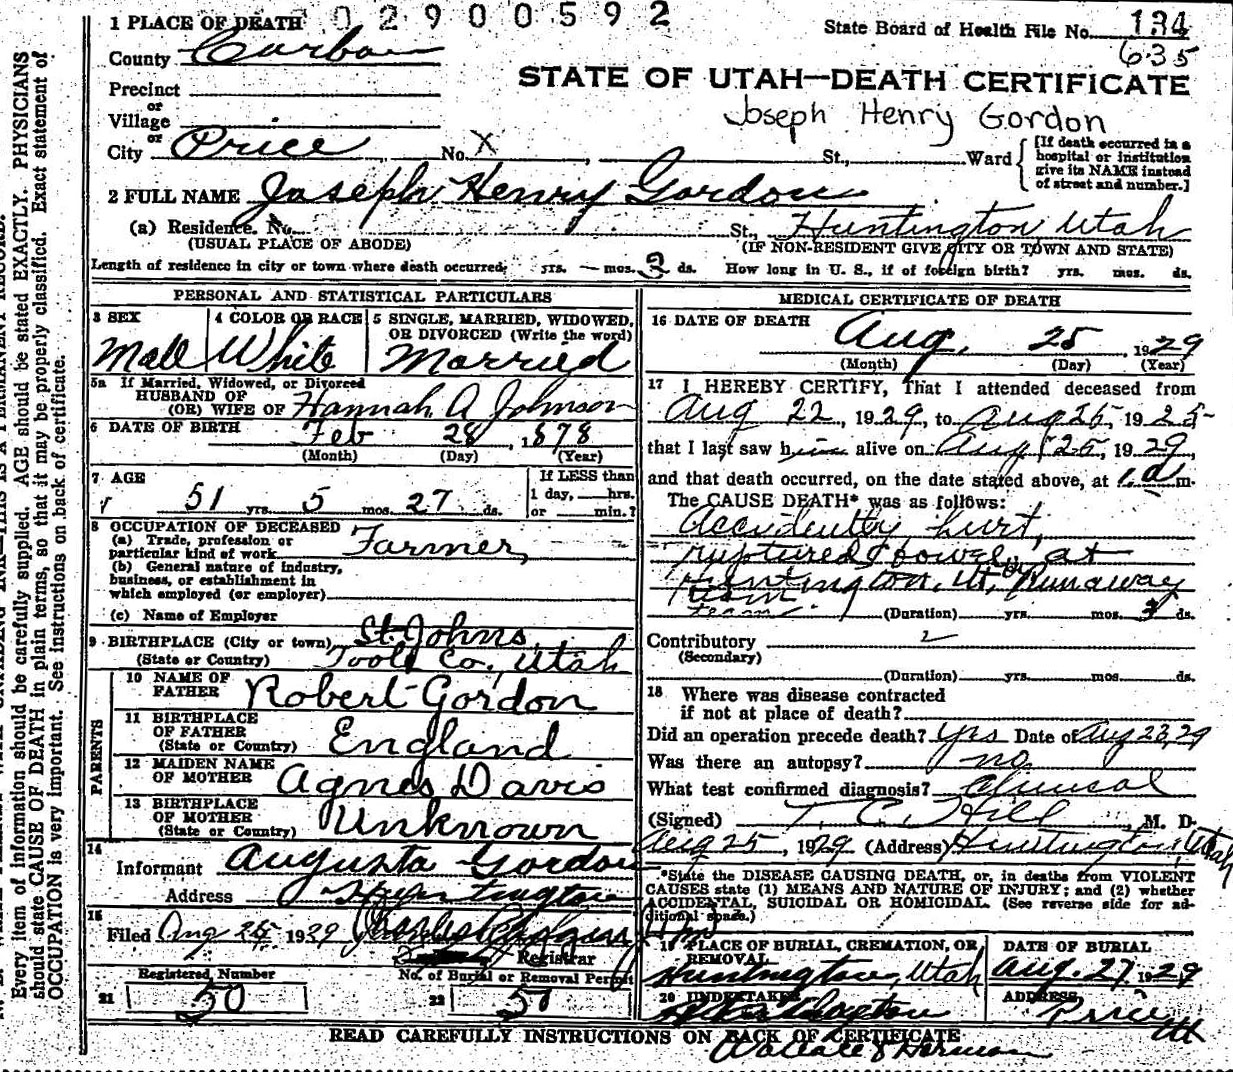 02900592
1 PLACE OF DEATH
State Board of Health File No. 134
635
County Carbon
STATE OF UTAH—DEATH CERTIFICATE
Precinct
or
Village
Joseph Henry Gordon
or
City Price No. X St., Ward
[If death occurred in a
hospital or institution
give its NAME instead
of street and number.]
2 FULL NAME Joseph Henry Gordon
(a) Residence. No. St., Huntington Utah
(USUAL PLACE OF ABODE) (IF NON-RESIDENT GIVE CITY OR TOWN AND STATE)
Length of residence in city or town where death occurred yrs. — mos. 3 ds. How long in U. S., if of foreign birth? yrs. mos. ds.
PERSONAL AND STATISTICAL PARTICULARS
3 SEX
Male
4 COLOR OR RACE
White
5 SINGLE, MARRIED, WIDOWED,
OR DIVORCED (Write the word)
Married
5a If Married, Widowed, or Divorced
HUSBAND OF
(OR) WIFE OF Hannah A Johnson
6 DATE OF BIRTH Feb 28, 1878
(Month) (Day) (Year)
7 AGE
51 yrs. 5 mos. 27 ds.
If LESS than
1 day, hrs.
or min.?
8 OCCUPATION OF DECEASED
(a) Trade, profession or
particular kind of work Farmer,
(b) General nature of industry,
business, or establishment in
which employed (or employer)
(c) Name of Employer
9 BIRTHPLACE (City or town) St Johns,
(State or Country) Tooele Co, Utah
PARENTS
10 NAME OF
FATHER Robert Gordon
11 BIRTHPLACE
OF FATHER
(State or Country) England
12 MAIDEN NAME
OF MOTHER Agnes Davis
13 BIRTHPLACE
OF MOTHER
(State or Country) Unknown
14
Informant Augusta Gordon
Address Huntington
15
Filed Aug 25 1929
Registrar
Registered Number No. of Burial or Removal Permit
21 50 22 50
MEDICAL CERTIFICATE OF DEATH
16 DATE OF DEATH
Aug, 25, 1929
(Month) (Day) (Year)
17 I HEREBY CERTIFY, That I attended deceased from
Aug 22, 1929, to Aug 25, 1925
that I last saw him alive on Aug 25, 1929,
and that death occurred, on the date stated above, at 1. a m.
The CAUSE DEATH* was as follows:
Accidently hurt,
ruptured bowel, at
Huntington, Ut, by Runaway
team
team. (Duration) yrs. mos. 3 ds.
Contributory
(Secondary)
(Duration) yrs. mos. ds.
18 Where was disease contracted
if not at place of death?
Did an operation precede death? yes Date of Aug 23, 29
Was there an autopsy? no
What test confirmed diagnosis?
(Signed) T. C. Hill, M. D.
Aug 25, 1929 (Address) Huntington, Utah
*State the DISEASE CAUSING DEATH, or, in deaths from VIOLENT
CAUSES state (1) MEANS AND NATURE OF INJURY; and (2) whether
ACCIDENTAL, SUICIDAL OR HOMICIDAL. (See reverse side for ad-
ditional space.)
19 PLACE OF BURIAL, CREMATION, OR
REMOVAL
Huntington, Utah
DATE OF BURIAL
Aug. 27, 1929
20 UNDERTAKER
ADDRESS
Price Ut
READ CAREFULLY INSTRUCTIONS ON BACK OF CERTIFICATE
Wallace & Harmon
Every item of information should be carefully supplied. AGE should be stated EXACTLY. PHYSICIANS
should state CAUSE OF DEATH in plain terms, so that it may be properly classified. Exact statement of
OCCUPATION is very important. See instructions on back of certificate.